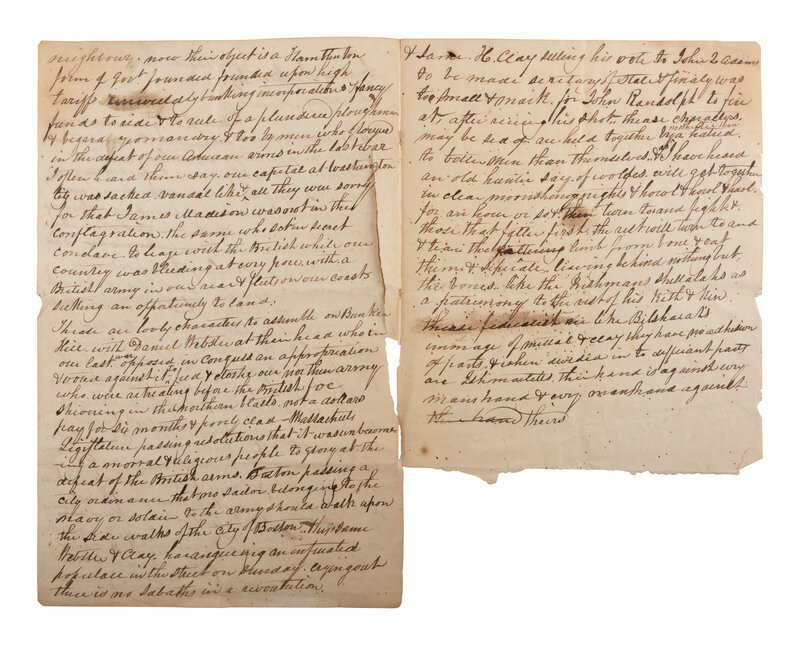 neighbours. now their object is a Hamthton
form of Govt founded founded upon high
tariffs banking incorporations & fancy
funds to ride & to rule of a plundered plough man
& begard yomanury. & too by men who gloryes
in the defeat of our American arms in the last war
I often heard them say. our capital at Washington
City was sacked vandal like & all they were sorry
for that James Madison was not in the
conflagration. the same who sat in secret
conclave. To leage with the British while our
country was bleeding at evry pore. with a
British army in our rear & fleets on our coasts
seeking an opportunity to land.
These are lovly characters to assemble on Bunker
Hill. with Daniel Webster at their head who in
our last war opposed in Congress an appropriation
& voted against it to feed & clothe our northern army
who. were retreating before the British foe
shivering in the northern blasts. not a dollars
pay for six months & poorly clad - Massachusets
Legislature passing resolutions that it was unbecome
-ing a morral & religious people to glory at the
defeat of the British arms. Boston passing a
city ordinance that no sailor belonging to the
navy or soldier to the army should walk upon
the side walks of the city of Boston. This same
Webster & Clay. harangueing an infuriated
populace in the street on Sunday. crying out
there is no Sabaths in a revoultution.
& same H. Clay selling his vote to John Q Adams
to be made secretary of State & finally was
too small & onaik. for John Randolph to fire
at. after riceing his shot. these charactors.
may be sed of. air held together by a mothe his than hatred.
to better men than themselves. & as I have heard
an old hunter say of wolves. will get together
in clear moonshiney nights & howl & howl & howl.
for an hour or so & then turn to and fight &
those that falter first the rest will turn to and
& tear the faltering limb from bone & eat
them & seperate, leaving behind nothing but
the bones. like the Irishmans shellalahs as
a patrimony to the rest of his Keth & Kin
These federalist air like Belshazars
immage of mettal & clay they have no adhesion
of parts. & when divided in to differant parts
are Ishmaelites. their hand is against evry
mans hand & evry mans hand against
their hand theirs